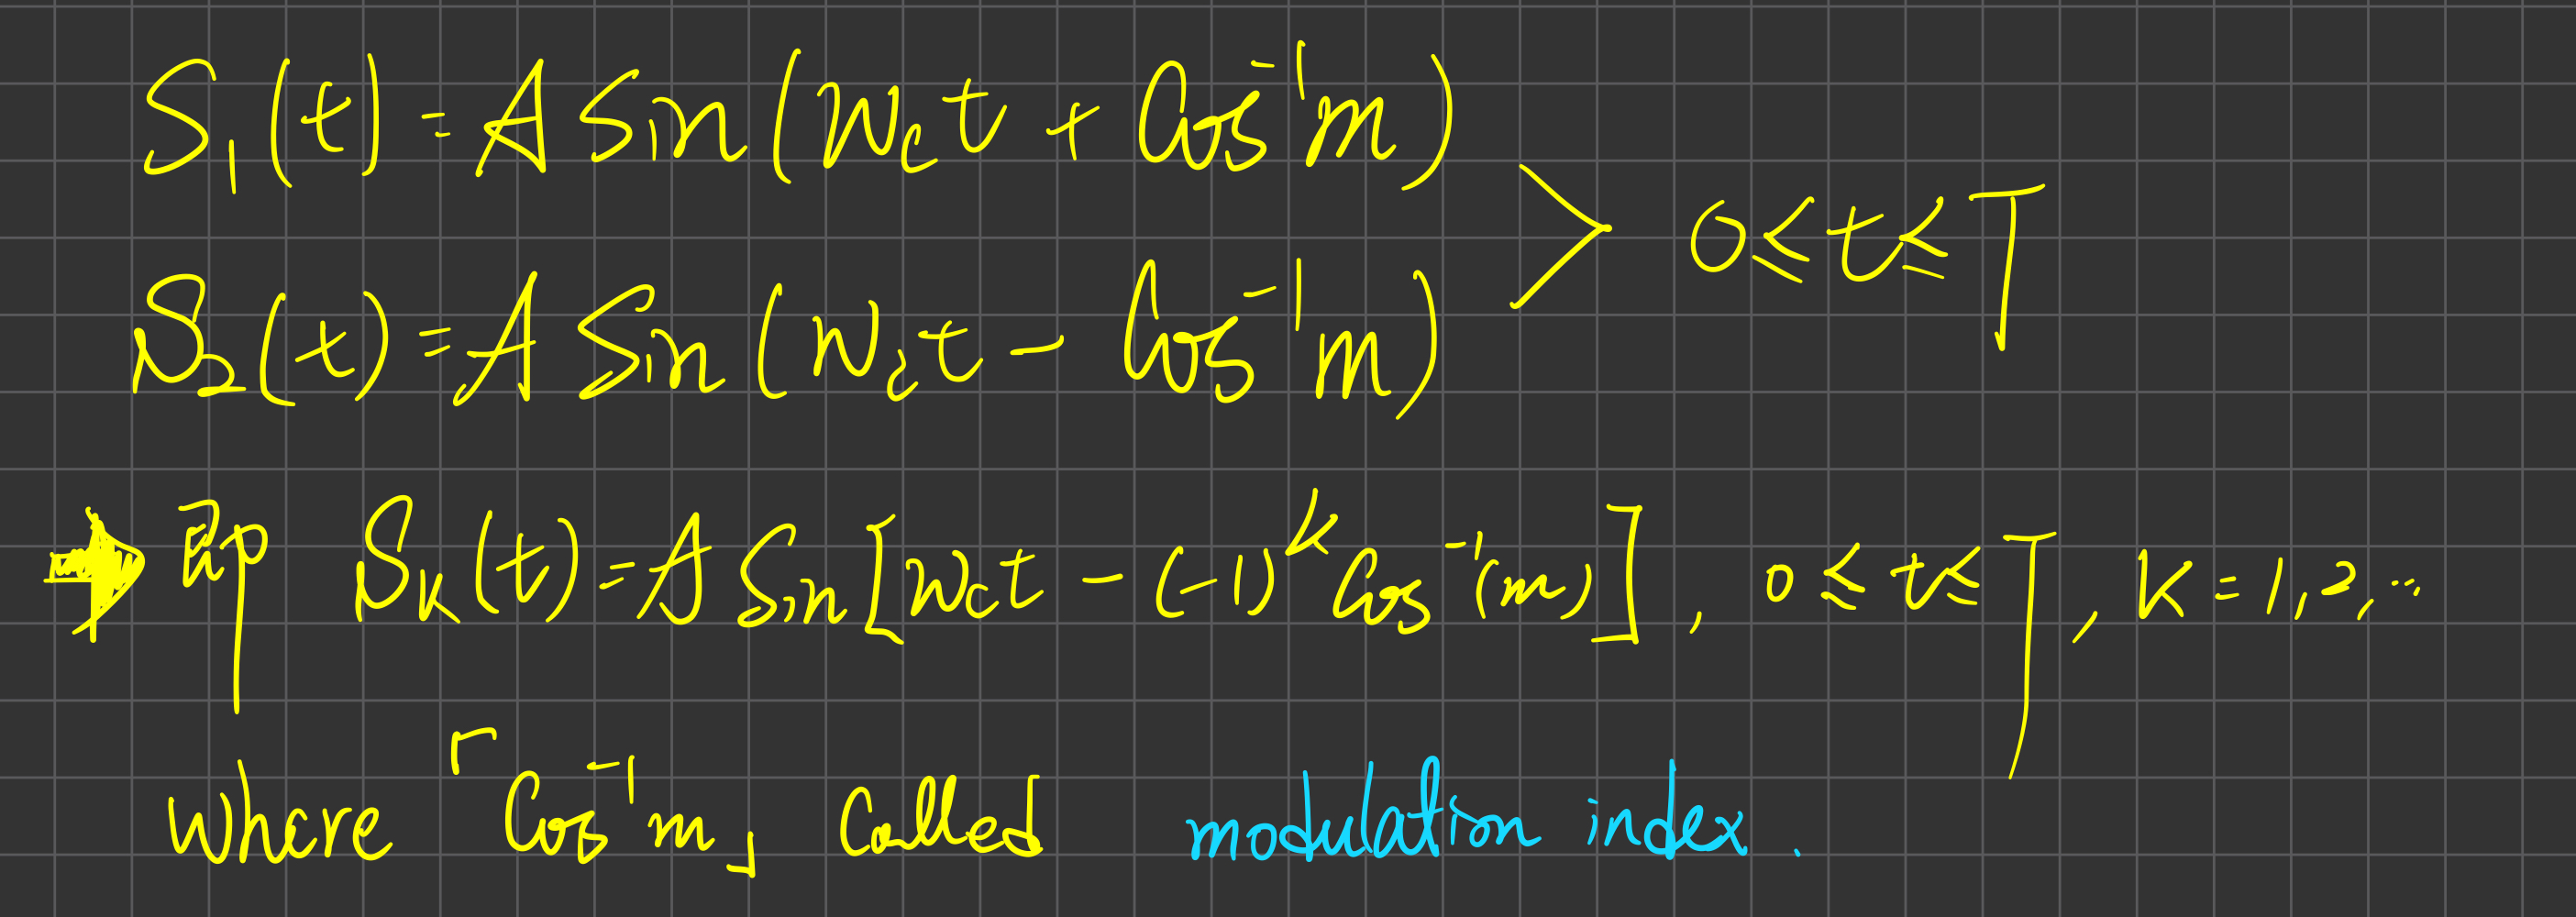 S₁(t) = A Sin(Wct + Cos⁻¹m)
> 0 ≤ t ≤ T
S₂(t) = A Sin(Wct - Cos⁻¹m)
→ 即 Sₖ(t) = A Sin[Wct - (-1)ᴷ Cos⁻¹(m)], 0 ≤ t ≤ T, K = 1, 2, ...
where 「Cos⁻¹m」 called modulation index.